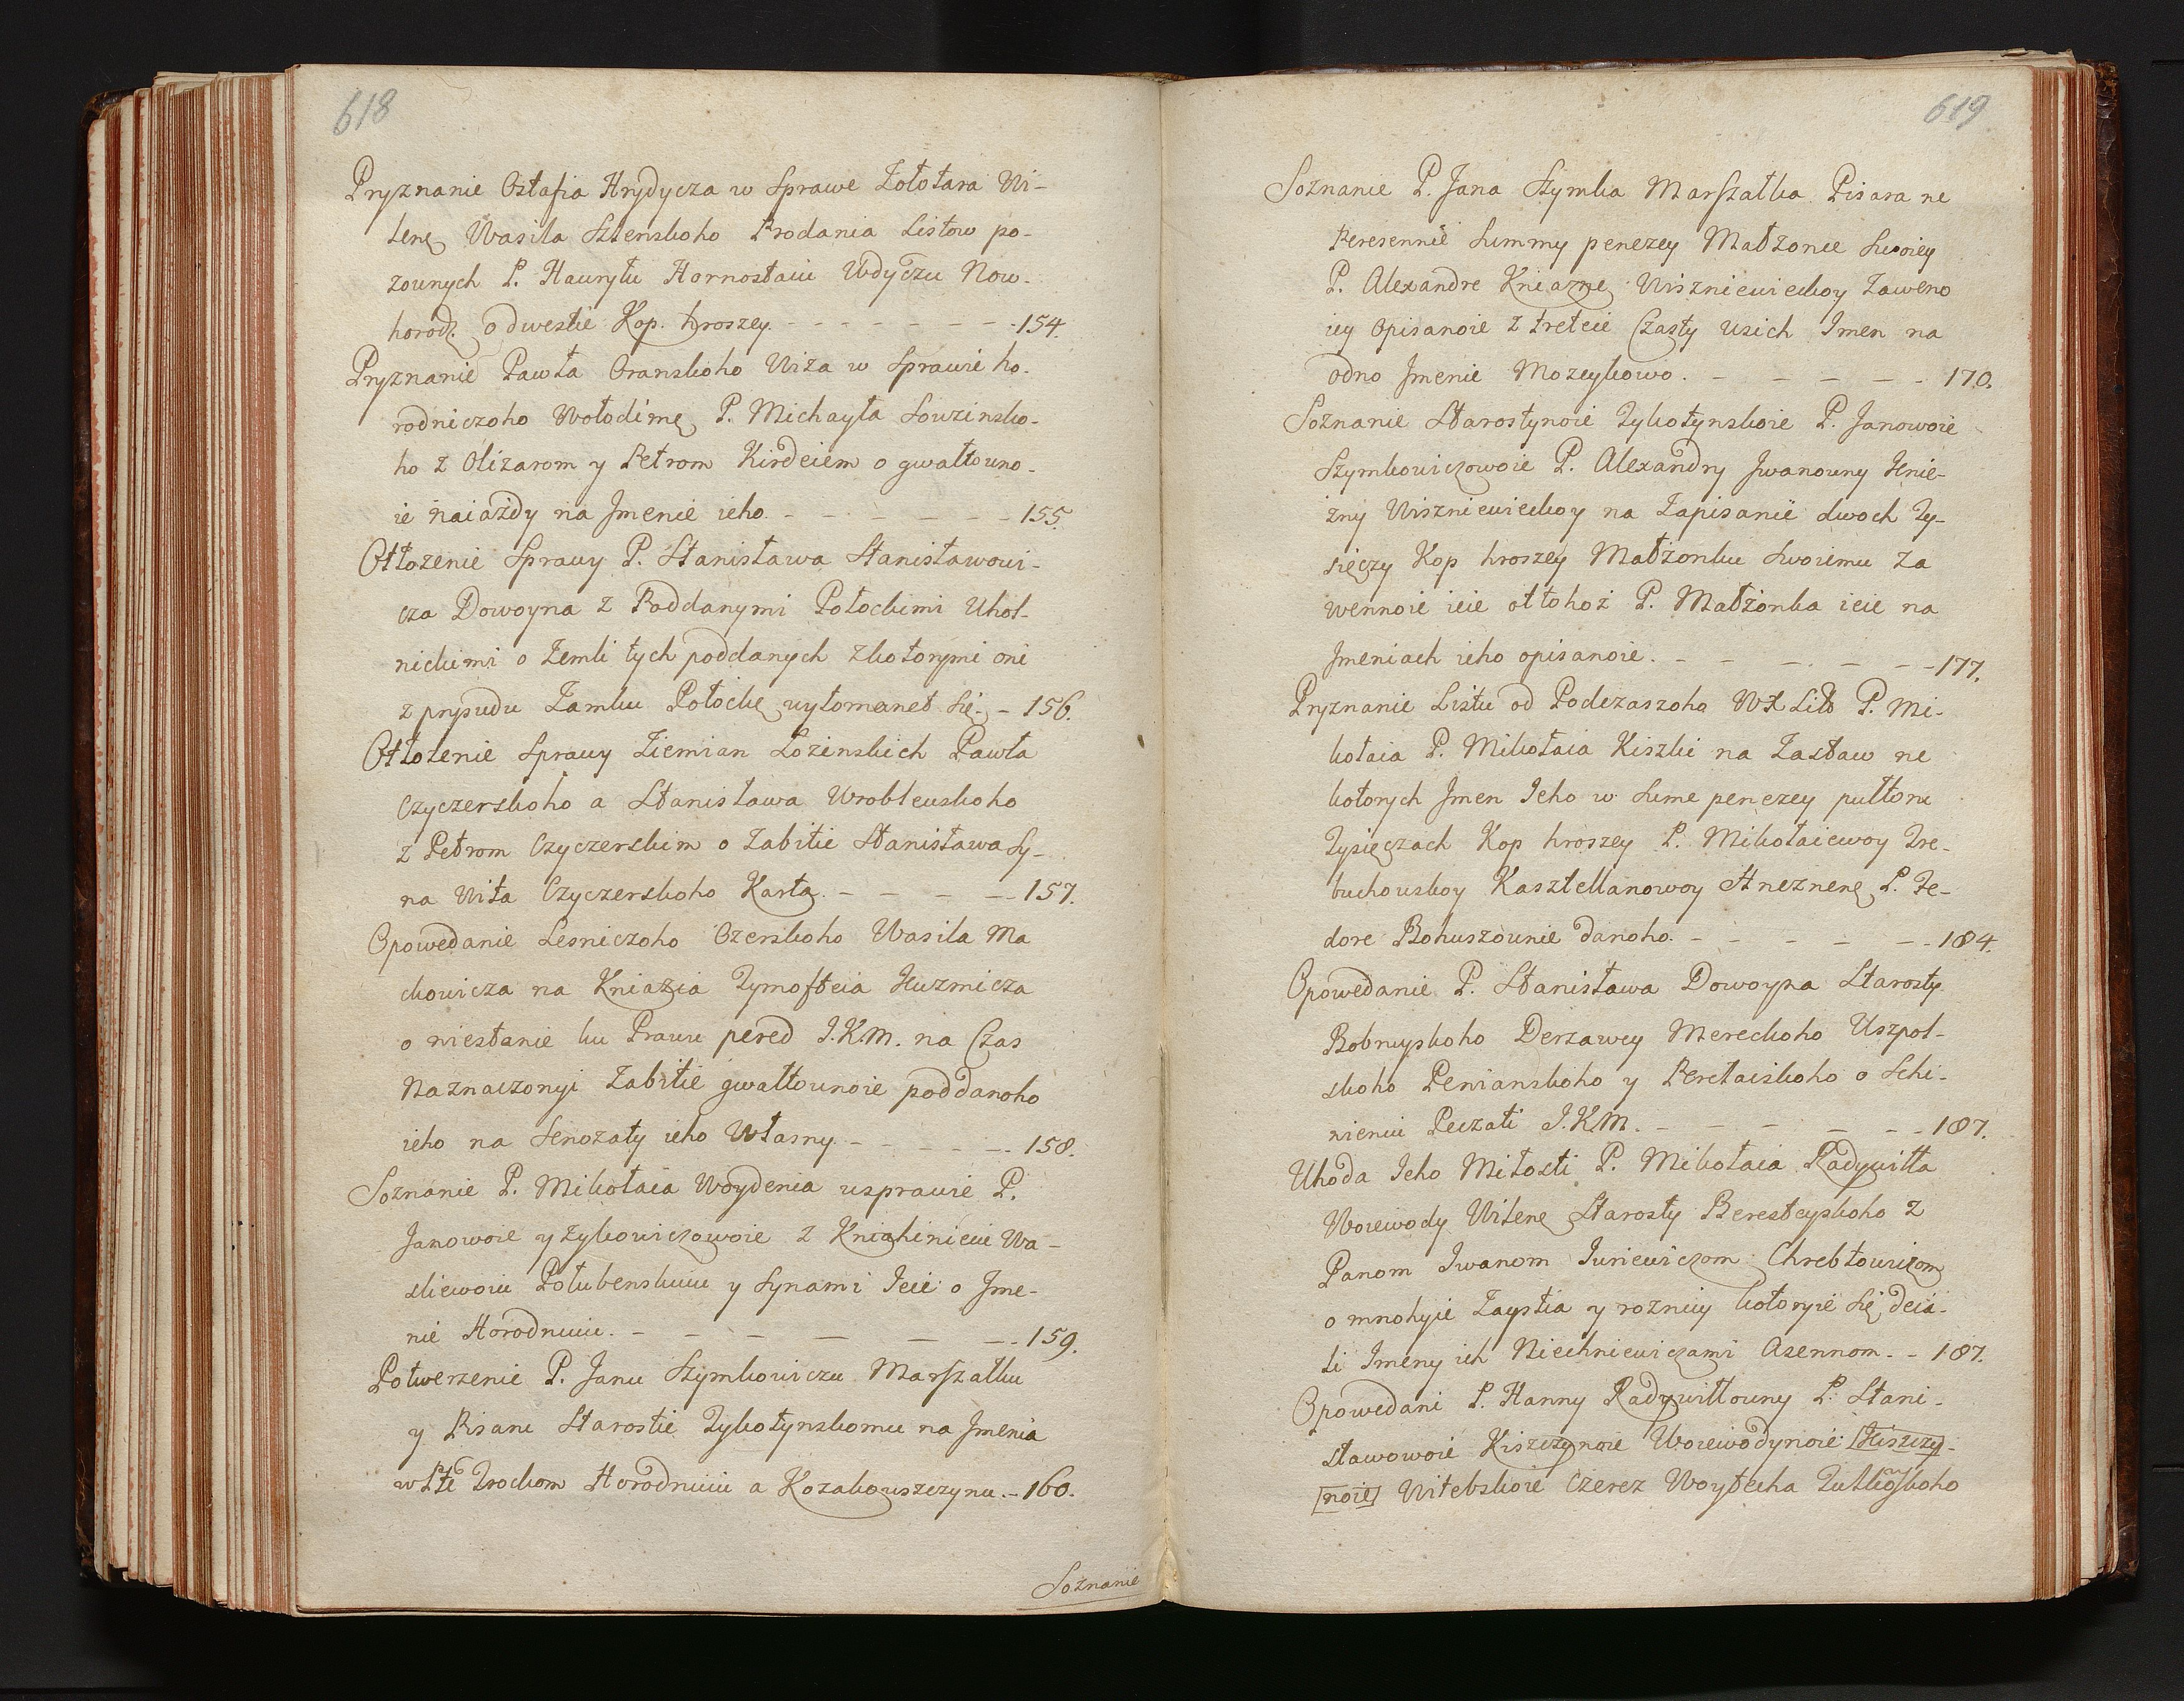 618
Pryznanie Ostafia Hrydycza w Sprawe Zołotara Wi-
lenę Wasila Sklenskoho Prodania Listow po-
zownych P. Hawryłu Hornostaiu Wdyczu Now-
horodz. o dwestie Kop. hroszey. - - - - - - - 154.
Pryznanie Pawła Oranskoho Wiża w Sprawie ho-
rodniczoho Wołodimę P. Michayła Souzinsko-
ho z Olizarom y Petrom Kirdeiem o gwałtowno-
ie naiażdy na Jmenie ieho. - - - - - - 155.
Otłożenie Sprawy P. Stanisława Stanisławowi-
cza Dowoyna z Poddanymi Połockimi Uhol-
nickimi o Zemli tych poddanych z kotorymi oni
z prysudu Zamku Połockę wyłomanet się. - 156.
Otłożenie Sprawy Ziemian Łozinskich Pawła
Czyczerskoho a Stanisława Wroblewskoho
z Petrom Czyczerskim o Zabitie Stanisława Sy-
na Wita Czyczerskoho Karta. - - - - 157.
Opowedanie Lesniczoho Ozerskoho Wasila Ma
ckowicza na Kniazia Tymofteia Kuzmicza
o niestanie ku Prawu pered J.K.M. na Czas
Naznaczonyi Zabitie gwałtownoie poddanoho
ieho na Senozaty ieho Własny. - - - - - 158.
Soznanie P. Mikołaia Woydenia usprawie P.
Janowoie yzykowiczowoie z Kniahinieiu Wa-
sliewoiu Połubenskuiu y Synami Ieie o Jme-
nie Horodnuiu. - - - - - - 159.
Potwerzenie P. Janu Szymkowiczu Marszałku
y Pisaru Starostie Tykotynskomu na Jmenia
w Pte Trockom Horodnuiu a Kozakowszczynu. - 160.
Soznanie
619
Soznanie P. Jana Szymka Marszałka Pisara ne
Peresennie Summy penezey Małżonce Swoiey
P. Alexandre Kniazne Wiszniewieckoy Zaweno
iey opisanoie z treteie Czasty usich Imen na
odno Jmenie Mozeykowo. - - - - - 170.
Soznanie Starostynoie Tykotynskoie P. Janowoie
Szymkowiczowoie P. Alexandry Jwanowny Knie-
żny Wiszniewieckoy na Zapisanie dwoch Ty-
sięczy Kop hroszey Małżonku Swoiemu Za
wennoie ieie ottohoż P. Małżonka ieie na
Jmeniach ieho opisanoie. - - - - - - 177.
Pryznanie Listu od Podczaszoho WX Lito P. Mi-
kołaia P. Mikołaia Kiszki na Zastaw ne
kotorych Jmen Ieho w Sume penezey pułtoru
Tysięczach Kop hroszey P. Mikołaiewoy Tre-
buchowskoy Kasztellanowoy Hneznenę P. Fe-
dore Bohuszownie danoho. - - - - - - 184.
Opowedanie P. Stanisława Dowoyna Starosty
Bobruyskoho Derzawcy Mereckoho Uszpol-
skoho Penianskoho y Peretaiskoho o Schi-
nieniu Peczati J.K.M. - - - - - - 187.
Uhoda Ieho Miłosti P. Mikołaia Radywiłła
Woiewody Wilenę Starosty Beresteyskoho z
Panom Iwanom Juriewiczom Chrebtowiczom
o mnohyie Zaystia y roznicy kotoryie się deia-
li Imeny ich Niechniewiczami Asennom. - 187.
Opowedani P. Hanny Radywiłłowny P. Stani-
sławowoie Kiszczynoie Woiewodynoie [Kiszczy-
noie] Witebskoie Czerez Woytecha Tutkowskoho